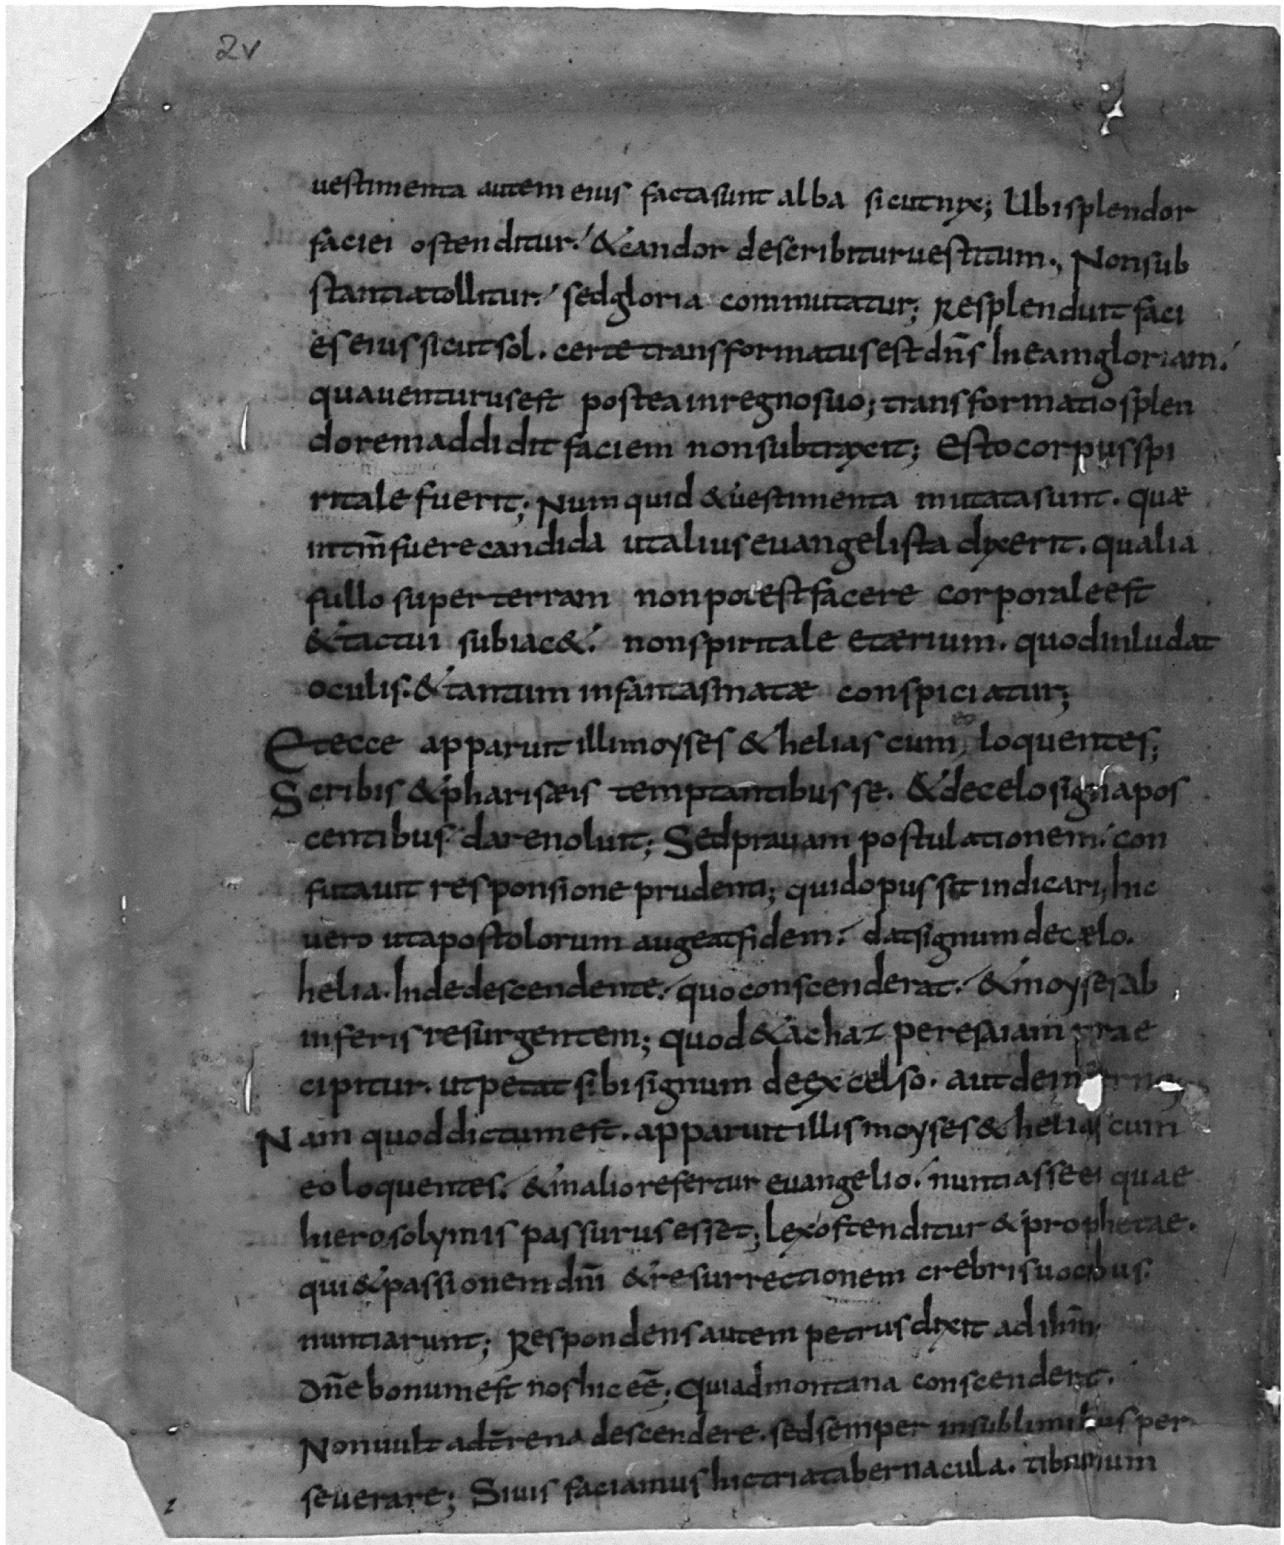 2v
uestimenta autem eius facta sunt alba sicut nyx; Ubi splendor
faciei ostenditur. & candor describitur uestitum., Non sub
stantia tollitur. sed gloria commutatur; Resplenduit faci
es eius sicut sol. certe transformatus est dn̄s In eam gloriam.
qua uenturus est postea in regno suo; transformatio splen
dorem addidit faciem non subtraxit; Esto corpus spi
ritale fuerit; Num quid & uestimenta mutata sunt. quæ
in tm̄ fuere candida ut alius euangelista dixerit. qualia
fullo super terram non potest facere corporale est
& tactui subiac&. non spiritale etærium. quod inludat
oculis. & tantum in fantasmatæ conspiciatur;
Et ecce apparuit illi moyses & helias cum eo loquentes;
Scribis & pharisæis temptantibus se. & de celo signa pos
centibus dare noluit; Sed prauam postulationem. con
futauit responsione prudenti; quid opus sit indicari; hic
uero ut apostolorum augeat fidem. dat signum de cælo.
helia. Inde descendente. quo conscenderat. & moyse ab
inferis resurgentem; quod & achaz per esaiam prae
cipitur. ut petat sibi signum de excelso. aut de
Nam quod dictum est. apparuit illis moyses & helias cum
eo loquentes. & in alio refertur euangelio. nuntiasse ei quae
hierosolymis passurus esset; lex ostenditur & prophetae.
qui & passionem dnī & resurrectionem crebris uocibus
nuntiarunt; Respondens autem petrus dixit ad ihm̄
Dn̄e bonum est nos hic eē. Qui ad montana conscendert.
Non uult ad tērrena descendere. sed semper in sublimibus per
seuerare; Si uis faciamus hic tria tabernacula. tibi unum